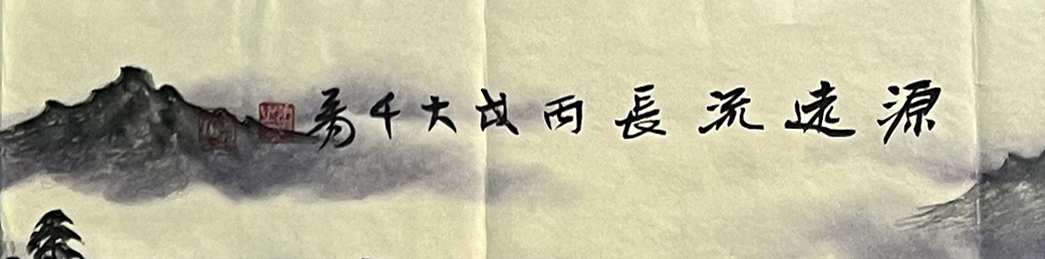 源遠流長丙戌大千寫